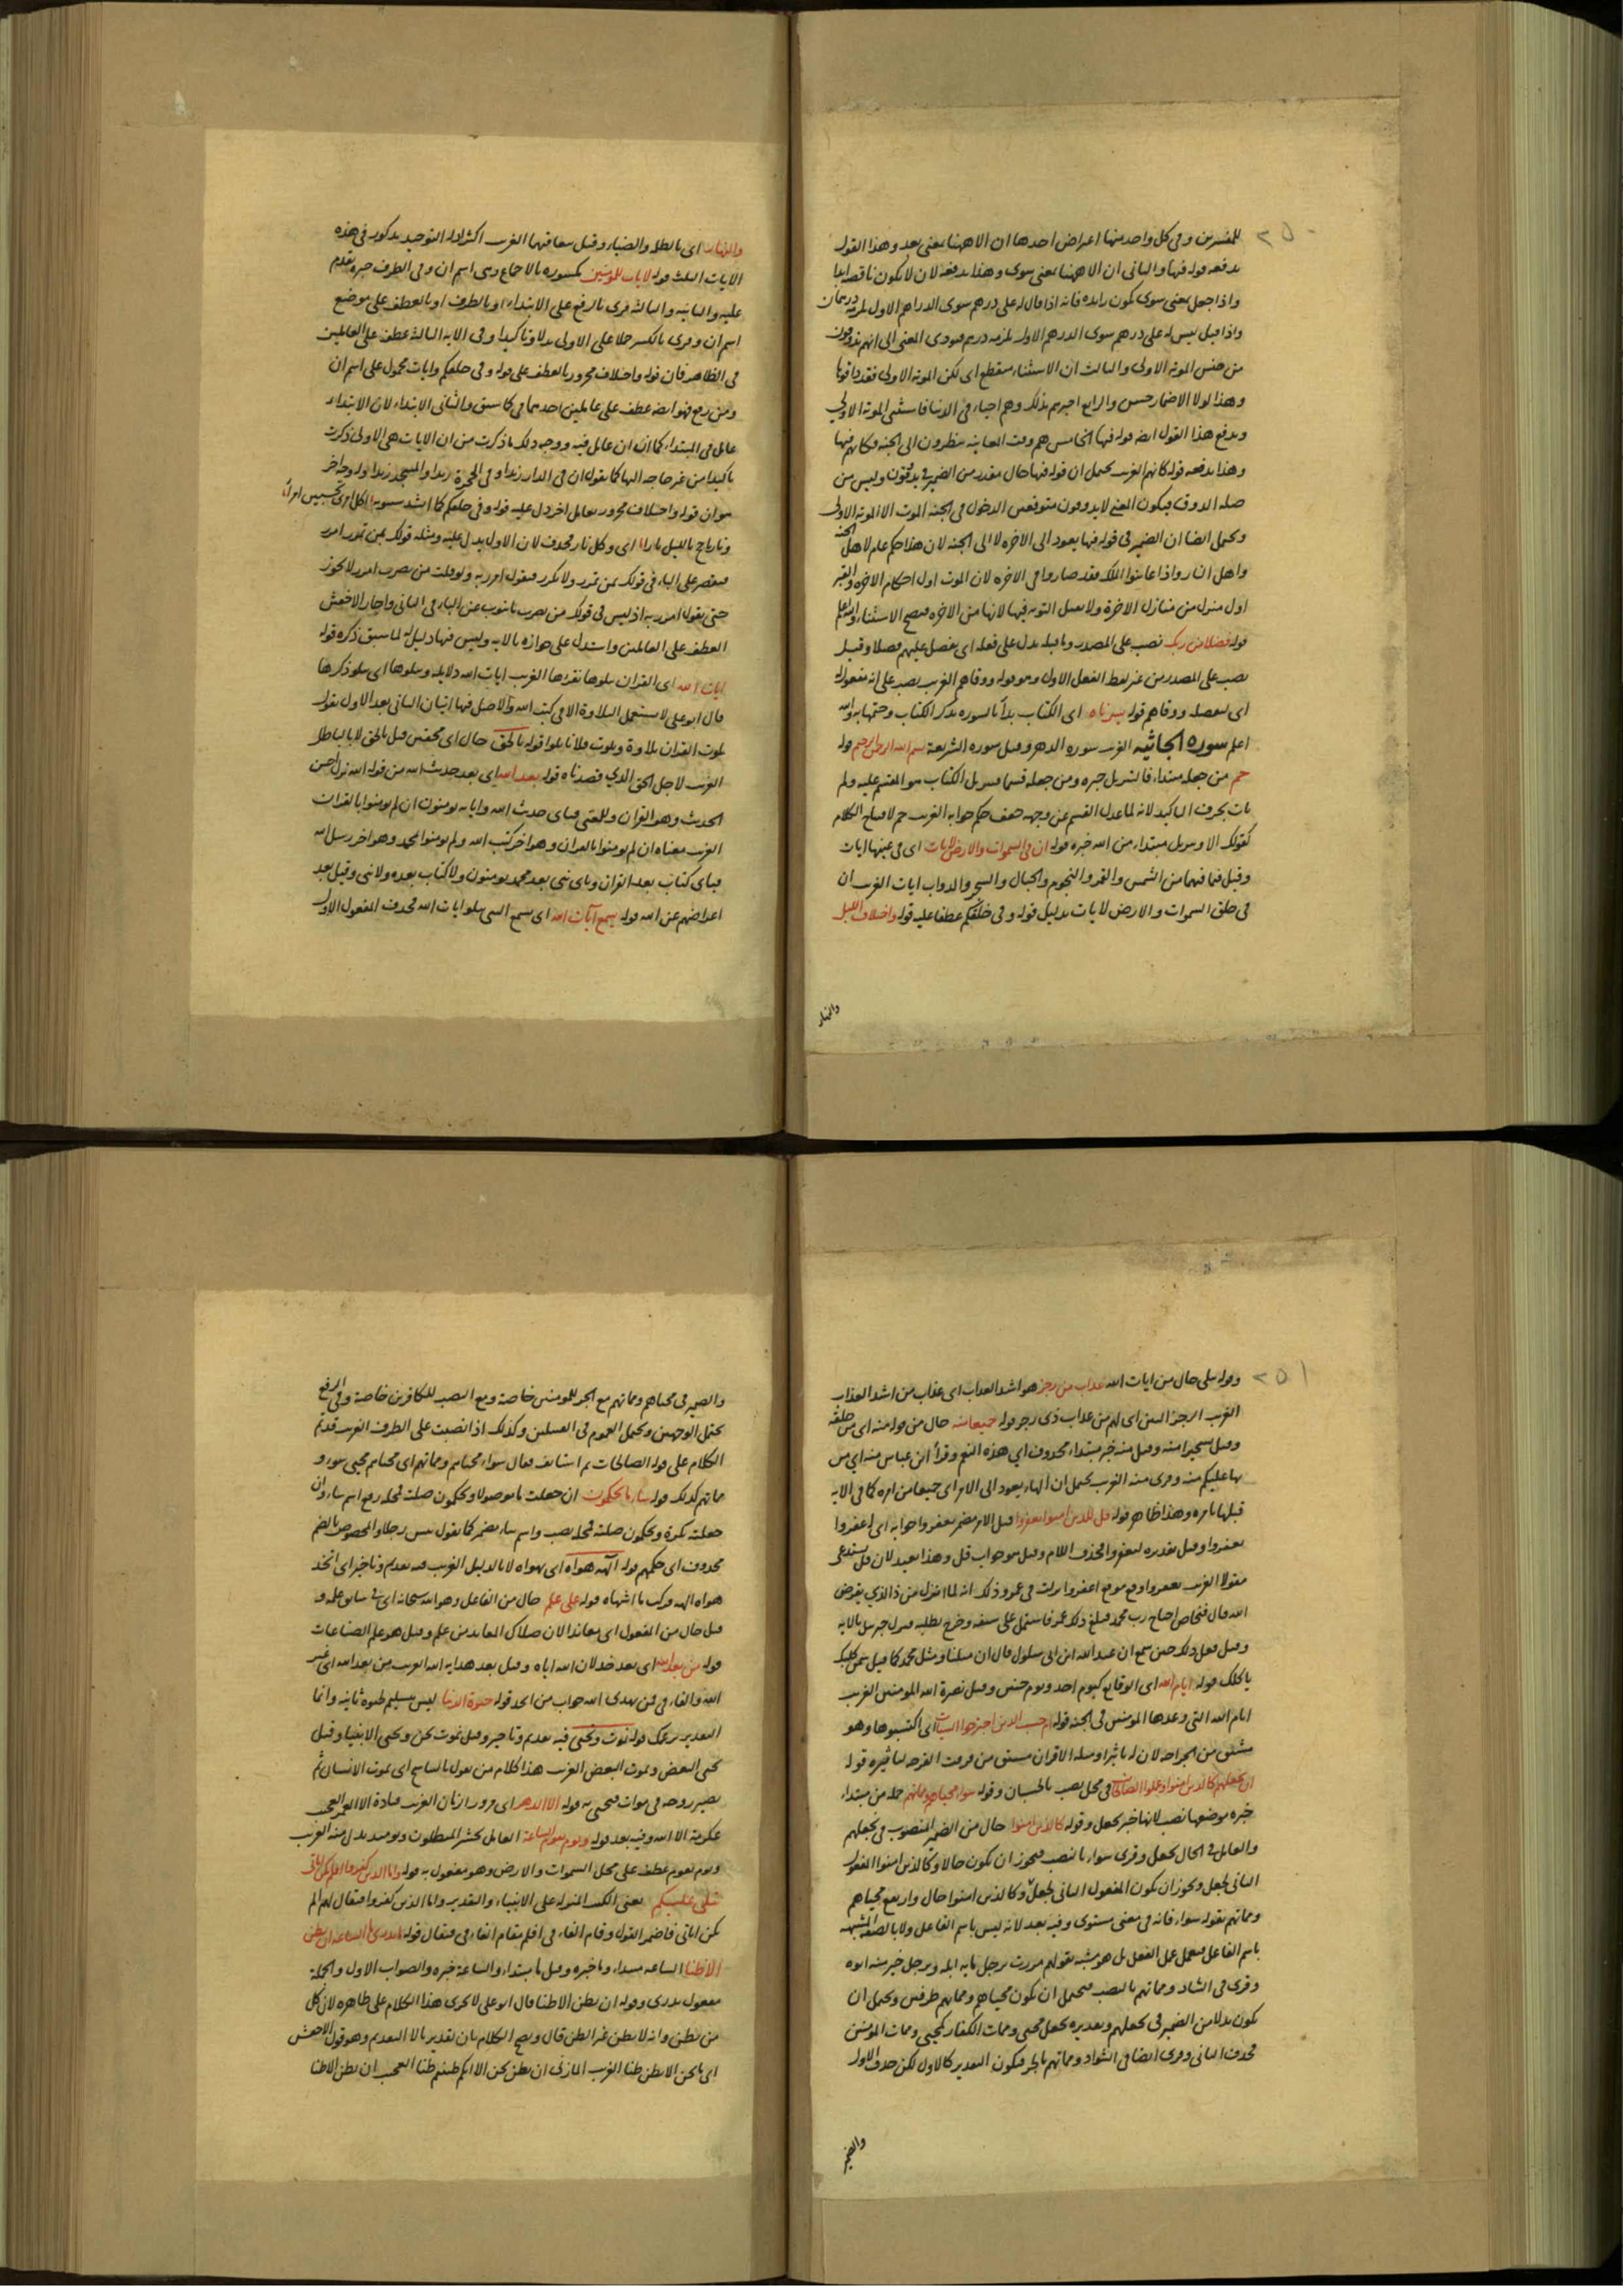 ٢٥٠
للمفسرين وفى كل واحد منها اعراض احدها ان الا ههنا بمعنى بعد وهذا القول
يدفعه قوله فيها والثانى ان الا ههنا بمعنى سوى وهذا يدفعه لان لا يكون ناقصا
واذا جعل بمعنى سوى يكون زايده فانه اذا قال له على درهم سوى الدراهم الاول لزمه درهمان
واذا قيل ليس له على درهم سوى الدرهم الاول لزمه درهم فيودى المعنى الى انهم يذوقون
من جنس الموتة الاولى والثالث ان الاستثناء منقطع اى لكن الموتة الاولى فقد ذاقوها
وهذا لولا الاضمار حسن والرابع اخبرهم بذلك وهم احياء فى الدنيا فاستثنى الموتة الاولى
ويدفع هذا القول ايضا قوله فيها الخامس هم وقت المعاينة ينظرون الى الجنة فكانهم فيها
وهذا يدفعه قوله كانهم الغريب يحتمل ان قوله فيها حال مقدر من الضمير فى يذوقون وليس من
صلة الذوق فيكون المعنى لا يذوقون متوقعين الدخول فى الجنة الموت الا الموتة الاولى
ويحتمل ايضا ان الضمير فى قوله فيها يعود الى الاخرة لا الى الجنة لان هذا حكم عام لاهل الجنة
واهل النار واذا عاينوا الملك فقد صاروا فى الاخرة لان الموت اول احكام الاخرة والقبر
اول منزل من منازل الاخرة ولا يقبل التوبة فيها لانها من الاخرة فصح الاستثناء والله اعلم
قوله فضلا من ربك نصب على المصدر وما قبله يدل على فعله اى يفضل عليهم فضلا وقيل
نصب على المصدر من غير لفظ الفعل الاول وهو قوله ووقاهم الغريب نصب على انه مفعول له
اى لفضله ووقاهم قوله يسرناه اى الكتاب بدأ السورة بذكر الكتاب وختمها به والله
اعلم سورة الجاثية الغريب سورة الدهر وقيل سورة الشريعة بسم الله الرحمن الرحيم قوله
حم من جعله مبتداء فالتنزيل خبره ومن جعله قسما فتنزيل الكتاب هو المقسم عليه ولم
يات بحرف التاكيد لانه لما عدل القسم عن وجهه ضعف حكم جوابه الغريب حم لافتتاح الكلام
كقولك الا وتنزيل مبتداء من الله خبره قوله ان فى السموات والارض لايات اى فى عينها ايات
وقيل فيما فيهما من الشمس والقمر والنجوم والجبال والشجر والدواب ايات الغريب ان
فى خلق السموات والارض لايات بدليل قوله وفى خلقكم عطفا عليه قوله واختلاف الليل
والنهار
والنهار اى بالظلمة والضياء وقيل تعاقبهما الغريب اكثر ادلة التوحيد مذكور فى هذه
الايات الثلث قوله لايات للمؤمنين مكسورة بالاجماع وهى اسم ان وفى الظرف خبره تقدم
عليه والثانية والثالثة قرى بالرفع على الابتداء او بالظرف او بالعطف على موضع
اسم ان وقرى بالكسر حملا على الاولى بدلا وتاكيدا وفى الاية الثالثة عطف على العاملين
فى الظاهر فان قوله واختلاف مجرور بالعطف على قوله وفى خلقكم وايات محمول على اسم ان
ومن رفع فهو ايضا عطف على عاملين احدهما فى كما سبق والثانى الابتداء لان الابتداء
عامل فى المبتداء كما ان ان عامل فيه ووجه ذلك ما ذكرت من ان الايات هى الاولى ذكرت
تاكيدا من غير حاجة اليها كما يقول ان فى الدار زيدا وفى الحجرة زيدا والمسجد زيدا وله وجه اخر
هو ان قوله واختلاف مجرور بعامل اخر دل عليه قوله وفى خلقكم كما انشد سيبويه اكل امرئ تحسبين امرأ
ونار تاجج بالليل نارا اى وكل نار فحذف لان الاول يدل عليه ومثله قولك بمن تمرر امرر
فتقتصر على الباء فى قولك بمن تمرر ولا تكرر فتقول امرر به ولو قلت من تضرب امرر لا يجوز
حتى يقول امرر به اذ ليس فى قولك من تضرب ما ينوب عن الباء فى الثانى واجاز الاخفش
العطف على العاملين واستدل على جوازه بالاية وليس فيها دليل له لما سبق ذكره قوله
ايات الله اى القران نتلوها نقراها الغريب ايات الله دلايله ونتلوها اى نتلو ذكرها
قال ابو على لا يستعمل التلاوة الا فى كتب الله والاصل فيها اتيان الثانى بعد الاول يقول
تلوت القران تلاوة وتلوت فلانا تلوا قوله بالحق حال اى محقين قيل بالحق لا بالباطل
الغريب لاجل الحق الذى قصدناه قوله بعد الله اى بعد حديث الله من قوله الله نزل احسن
الحديث وهو القران والمعنى فباى حديث الله واياته يومنون ان لم يومنوا بالقران
الغريب معناه ان لم يومنوا بالقران وهو اخر كتب الله ولم يومنوا بمحمد وهو اخر رسل الله
فباى كتاب بعد القران وباى نبى بعد محمد يومنون ولا كتاب بعده ولا نبى وقيل بعد
اعراضهم عن الله قوله يسمع آيات الله اى يسمع النبى يتلو ايات الله فحذف المفعول الاول
٢٥١
وقوله تتلى حال من ايات الله عذاب من رجز هو اشد العذاب اى عذاب من اشد العذاب
الغريب الرجز النتن اى لهم من عذاب ذى رجز قوله جميعا منه حال من قوله منه اى من خلقه
وقيل تسخيرا منه وقيل منه خبر مبتداء محذوف اى هذه النعم وقرأ ابن عباس منه اى من
بها عليكم منه وقرى منه الغريب يحتمل ان الهاء يعود الى الامر اى جميعا من امره كما فى الاية
قبلها بامره وهذا ظاهر قوله قل للذين امنوا يغفروا قيل الامر مضمر يغفروا جوابه اى اغفروا
يغفروا وقيل تقديره ليغفروا فحذف اللام وقيل هو جواب قل وهذا بعيد لان قل يستدعى
مقولا الغريب يغفروا وقع موقع اغفروا نزلت فى عمر وذلك انه لما انزل من ذا الذى يقرض
الله قال فنحاص احتاج رب محمد فبلغ ذلك عمر فاشتمل على سيفه وخرج يطلبه فنزل جبريل بالاية
وقيل فعل ذلك حين سمع ان عبد الله ابن ابى سلول قال ان مثلنا ومثل محمد كما قيل سمن كلبك
ياكلك قوله ايام الله اى الوقايع كيوم احد ويوم حنين وقيل نصرة الله المومنين الغريب
ايام الله التى وعدها المومنين فى الجنة قوله ام حسب الذين اجترحوا السيئات اى اكتسبوها وهو
مشتق من الجراحة لان له تاثيرا ومثله الاقتراف مشتق من قرفت القرحة لتاثيره قوله
ان نجعلهم كالذين امنوا وعملوا الصالحات فى محل نصب بالحسبان وقوله سواء محياهم ومماتهم جملة من مبتداء
خبره موضعها نصب لانها خبر نجعل وقوله كالذين امنوا حال من الضمير المنصوب فى نجعلهم
والعامل فى الحال نجعل وقرى سواء بالنصب فيجوز ان يكون حالا وكالذين امنوا المفعول
الثانى لجعل ويجوز ان يكون المفعول الثانى لجعل وكالذين امنوا حال وارتفع محياهم
ومماتهم بقوله سواء فانه فى معنى مستوى وفيه بعد لانه ليس باسم الفاعل ولا بالصفة المشبهة
باسم الفاعل فيعمل عمل الفعل بل هو مشبه بقولهم مررت برجل مايه ابله وبرجل خير منه ابوه
وقرى فى الشاذ ومماتهم بالنصب فيحتمل ان يكون محياهم ومماتهم ظرفين ويحتمل ان
يكون بدلا من الضمير فى نجعلهم وتقديره نجعل محيى وممات الكفار كمحيى وممات المومنين
فحذف الثانى وقرى ايضا فى الشواذ ومماتهم بالجر فيكون التقدير كالاول لكن حذف الاول
والضمير
والضمير فى محياهم ومماتهم مع الجر للمومنين خاصة ومع النصب للكافرين خاصة وفى الرفع
يحتمل الوجهين ويحتمل العموم فى القبيلين وكذلك اذا نصبت على الظرف الغريب قد تم
الكلام على قوله الصالحات ثم استانف فقال سواء محياهم ومماتهم اى محياهم محيى سوء و
مماتهم كذلك قوله ساء ما يحكمون ان جعلت ما موصولا ويحكمون صلته فمحله رفع اسم ساء وان
جعلته نكرة ويحكمون صلته فمحله نصب واسم ساء مضمر كما يقول بئس رجلا والمخصوص بالذم
محذوف اى حكمهم قوله الهه هواه اى يهواه لا بالدليل الغريب فيه تقديم وتاخير اى اتخذ
هواه الهه فركب ما اشتهاه قوله على علم حال من الفاعل وهو الله سبحانه اى فى سابق علمه و
قيل حال من المفعول اى معاندا لان ضلال المعاند عن علم وقيل هو علم الصناعات
قوله من بعد الله اى بعد خذلان الله اياه وقيل بعد هداية الله الغريب من بعد الله اى غير
الله والفاء فى فمن يهدى الله جواب من اتخذ قوله حيوة الدنيا ليس بتسليم لحيوة ثانية وانما
التقدير بزعمك قوله نموت ونحيى فيه تقديم وتاخير وقيل نموت نحن ونحيى الابناء وقيل
نحيى البعض ويموت البعض الغريب هذا كلام من يقول بالتناسخ اى يموت الانسان ثم
يصير روحه فى موات فيحيى به قوله الا الدهر اى مرور الزمان الغريب قتادة الا العمر العجيب
عكرمة الا الله وفيه بعد قوله ويوم تقوم الساعة العامل يخسر المبطلون ويومئذ بدل منه الغريب
ويوم تقوم عطف على محل السموات والارض وهو مفعول به قوله واما الذين كفروا افلم تكن اياتى
تتلى عليكم يعنى الكتب المنزلة على الانبياء والتقدير واما الذين كفروا فيقال لهم الم
تكن اياتى فاضمر القول وقام الفاء فى افلم مقام الفاء فى فيقال قوله ما ندرى ما الساعة ان نظن
الا ظنا الساعة مبتداء وما خبره وقيل ما مبتداء والساعة خبره والصواب الاول والجملة
مفعول ندرى وقوله ان نظن الا ظنا قال ابو على لا يجرى هذا الكلام على ظاهره لان كل
من يظن فانه لا يظن غير الظن قال ويصح الكلام بان تقدير بالا التقديم وهو قول الاخفش
اى ما نحن الا نظن ظنا الغريب المازنى ان نظن نحن الا انكم ظننتم ظنا العجيب ان نظن الا ظنا